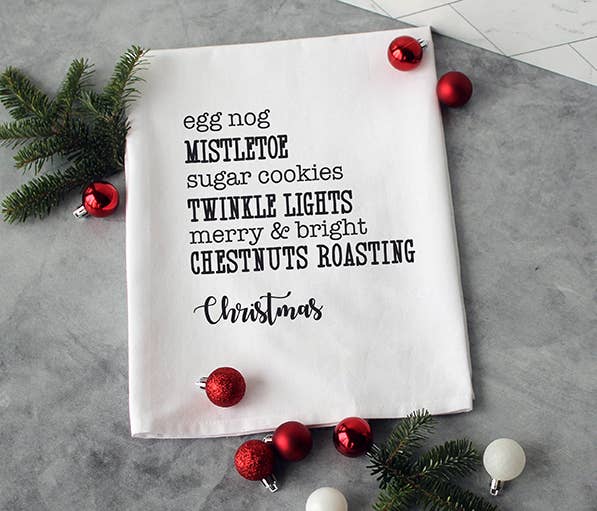 egg nog
MISTLETOE
sugar cookies
TWINKLE LIGHTS
merry & bright
CHESTNUTS ROASTING
Christmas